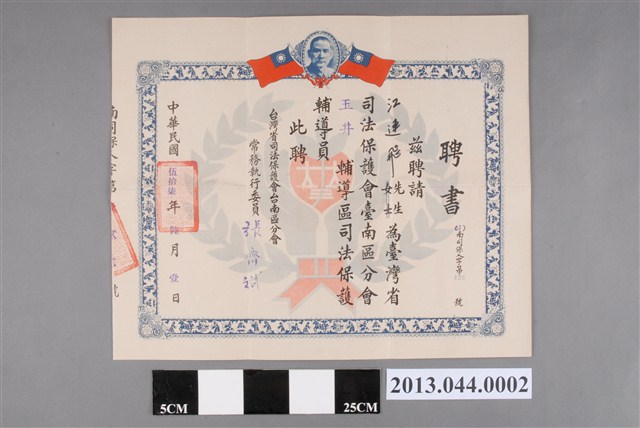 聘書
南司保人字第 號
茲聘請
江連 先生 女士 為臺灣省
司法保護會臺南區分會
玉井 輔導區司法保護
輔導員
此聘
台灣省司法保護會台南區分會
常務執行委員
中華民國 伍拾柒 年 月 壹 日
南司保人字第 號
5CM
25CM
2013.044.0002